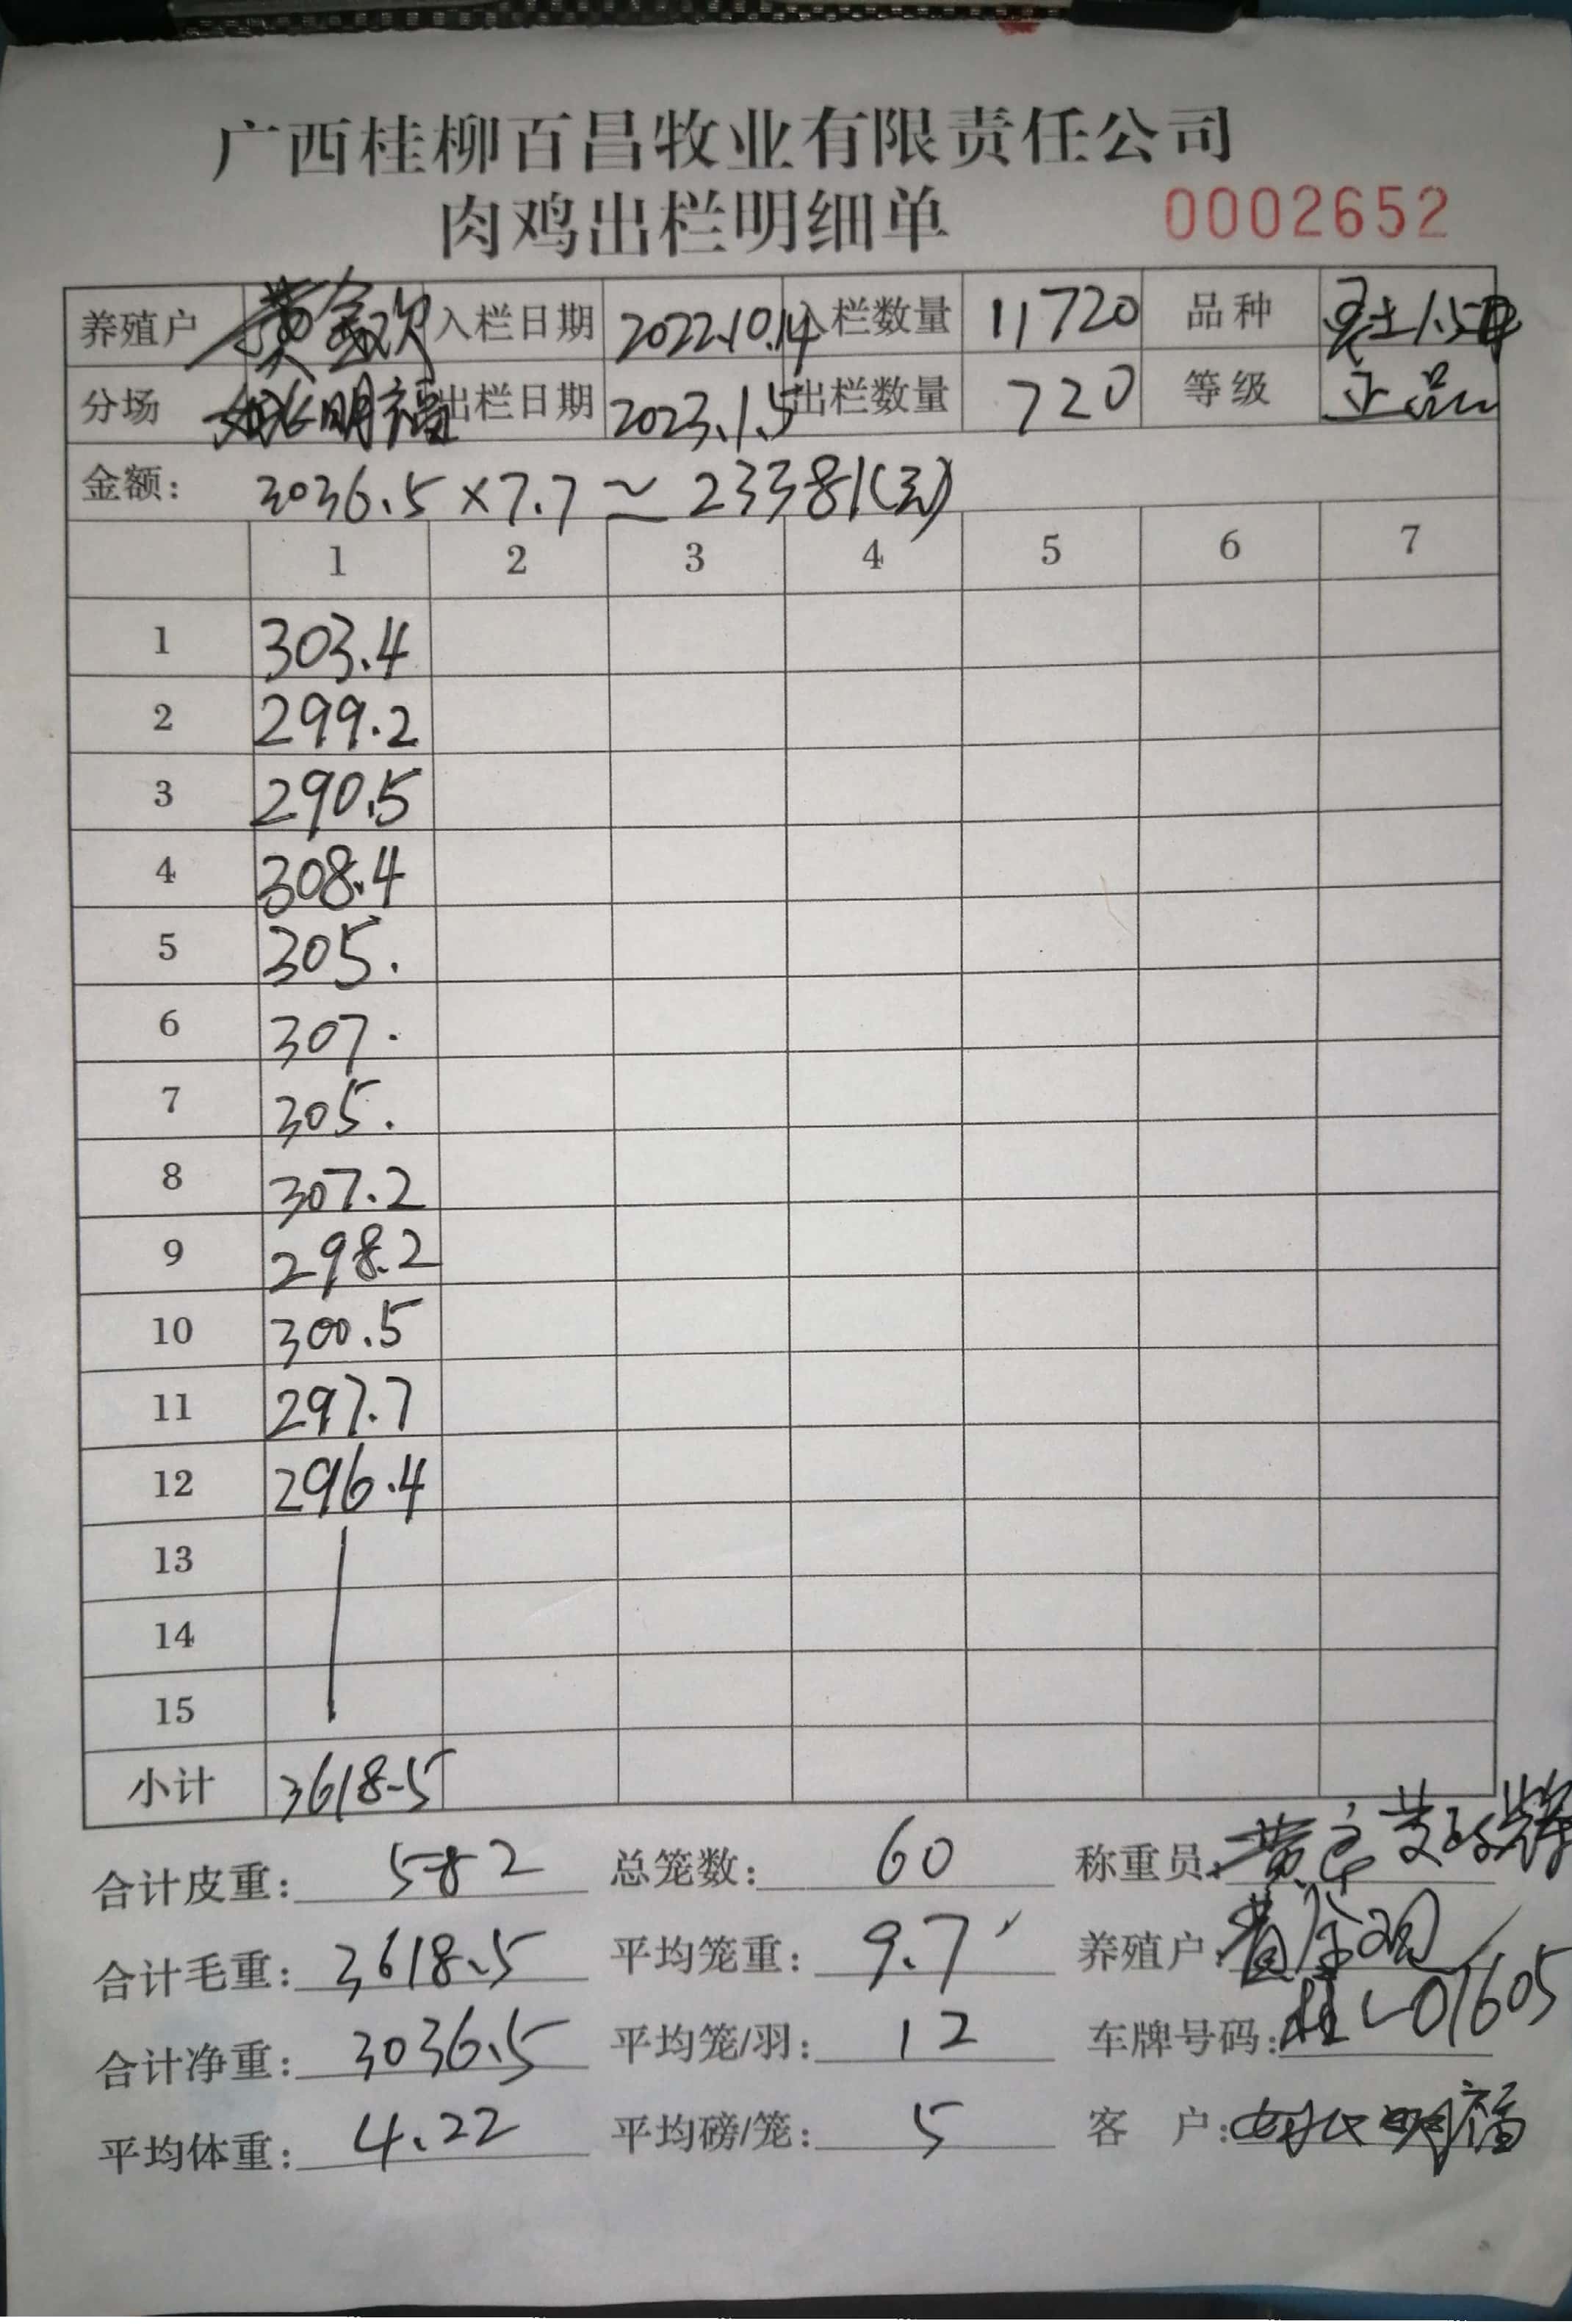 广西桂柳百昌牧业有限责任公司
肉鸡出栏明细单 0002652
养殖户 黄金欢 入栏日期 2022.10.14 入栏数量 11720 品种
分场 明福 出栏日期 2023.1.5 出栏数量 720 等级 正品
金额: 3036.5×7.7≈23381(元)
1 2 3 4 5 6 7
1 303.4
2 299.2
3 290.5
4 308.4
5 305.
6 307.
7 305.
8 307.2
9 298.2
10 300.5
11 297.7
12 296.4
13
14
15
小计 3618.5
合计皮重: 582 总笼数: 60 称重员:
合计毛重: 3618.5 平均笼重: 9.7 养殖户:
合计净重: 3036.5 平均笼/羽: 12 车牌号码: 桂L01605
平均体重: 4.22 平均磅/笼: 5 客户: 明福